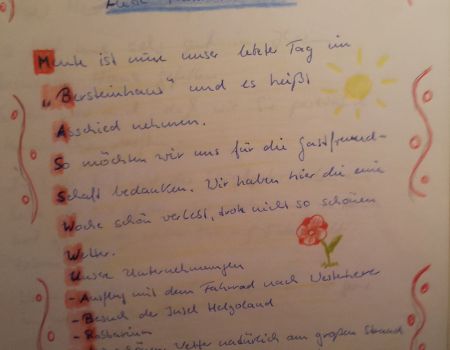 Heute ist nun unser letzter Tag im
„Bersteinhaus" und es heißt
Asschied nehmen.
So möchten wir uns für die Gastfreund-
schaft bedanken. Wir haben hier die eine
Woche schön verlebt, trotz nicht so schönen
Wetter.
Unsere Unternehmungen
- Ausflug mit dem Fahrrad nach
- Besuch der Insel Helgoland
- Rosarium
Wetter natürlich am großen Strand